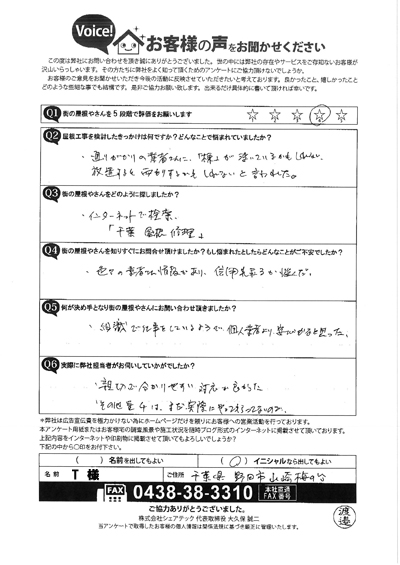 Voice!
お客様の声をお聞かせください
この度は弊社にお問い合わせを頂き誠にありがとうございました。世の中には弊社の存在やサービスをご存知ないお客様が
沢山いらっしゃいます。その方たちに弊社をよく知って頂くためのアンケートにご協力頂けないでしょうか。
お客様のご意見をお聞かせいただき今後の活動に反映させていただきたいと考えております。良かったこと、嬉しかったこと
どのような些細な事でも結構です。是非ご協力お願い致します。出来るだけ具体的に書いて頂ければ幸いです。
Q1 街の屋根やさんを5段階で評価をお願いします ☆ ☆ ☆ ☆ ☆
Q2 屋根工事を検討したきっかけは何ですか？どんなことで悩まれていましたか？
・通りがかりの業者さんに、「棟」が浮いているかもしれない
放置すると雨もりするかもしれないと言われた。
Q3 街の屋根やさんをどのように探しましたか？
・インターネットで検索。
「千葉 屋根 修理」
Q4 街の屋根やさんを知りすぐにお問合せ頂けましたか？もし悩まれたとしたらどんなことがご不安でしたか？
・色々の業者さんに情報があり、信用出来るか悩んだ。
Q5 何が決め手となり街の屋根やさんにお問い合わせ頂きましたか？
・組織で仕事をしているようで、個人業者より安心かなと思った。
Q6 実際に弊社担当者がお伺いしていかがでしたか？
・親切で分かりやすい対応で良かった
※弊社は広告宣伝費を極力かけない為にホームページだけを頼りにお客様への営業活動を行っております。
本アンケート用紙またはお客様宅の調査風景や施工状況を随時ブログ形式のインターネットに掲載させて頂いております。
上記内容をインターネットや印刷物に掲載させて頂いてもよろしいでしょうか？
下記の中から〇印をお付下さい。
( ) 名前を出してもよい (〇) イニシャルなら出してもよい
名前 T 様 ご住所 千葉県野田市山崎梅の台
FAX 0438-38-3310 本社直通 FAX番号
ご協力ありがとうございました。
株式会社シェアテック 代表取締役 大久保 誠二
当アンケートで取得したお客様の個人情報は関係法規に基づき厳正に管理いたします。
渡邉